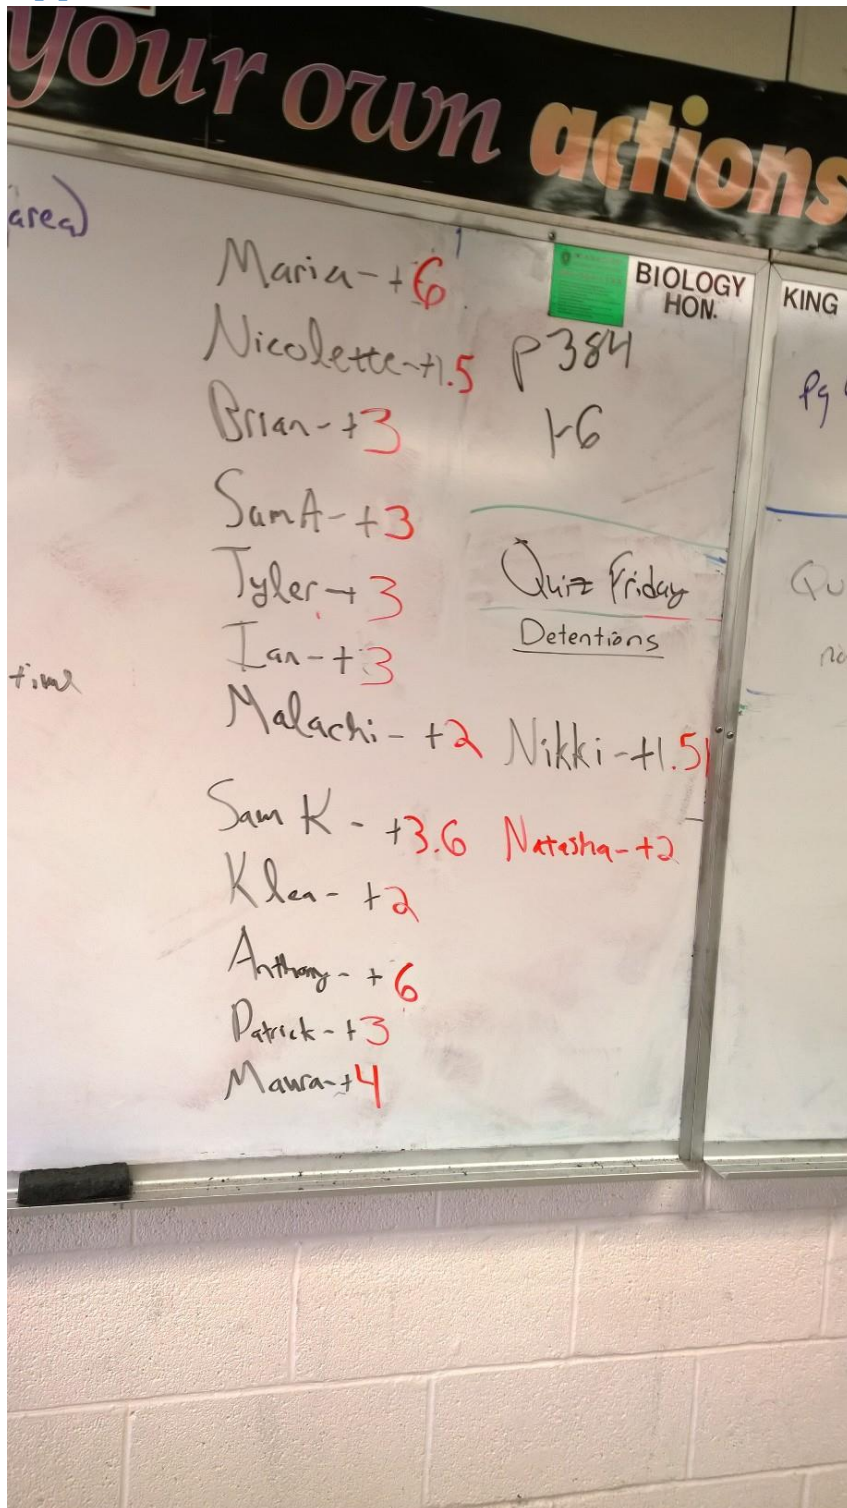 your own actions
area)
BIOLOGY
HON.
KING
Maria - +6
Nicolette - +1.5
Brian - +3
Sam A - +3
Tyler - + 3
Ian - +3
Malachi - +2
Sam K - +3.6
Klea - +2
Anthony - +6
Patrick - +3
Maura - +4
p 384
1-6
Quiz Friday
Detentions
Nikki - +1.5
Natasha - +2
time
Pg
Qu
no